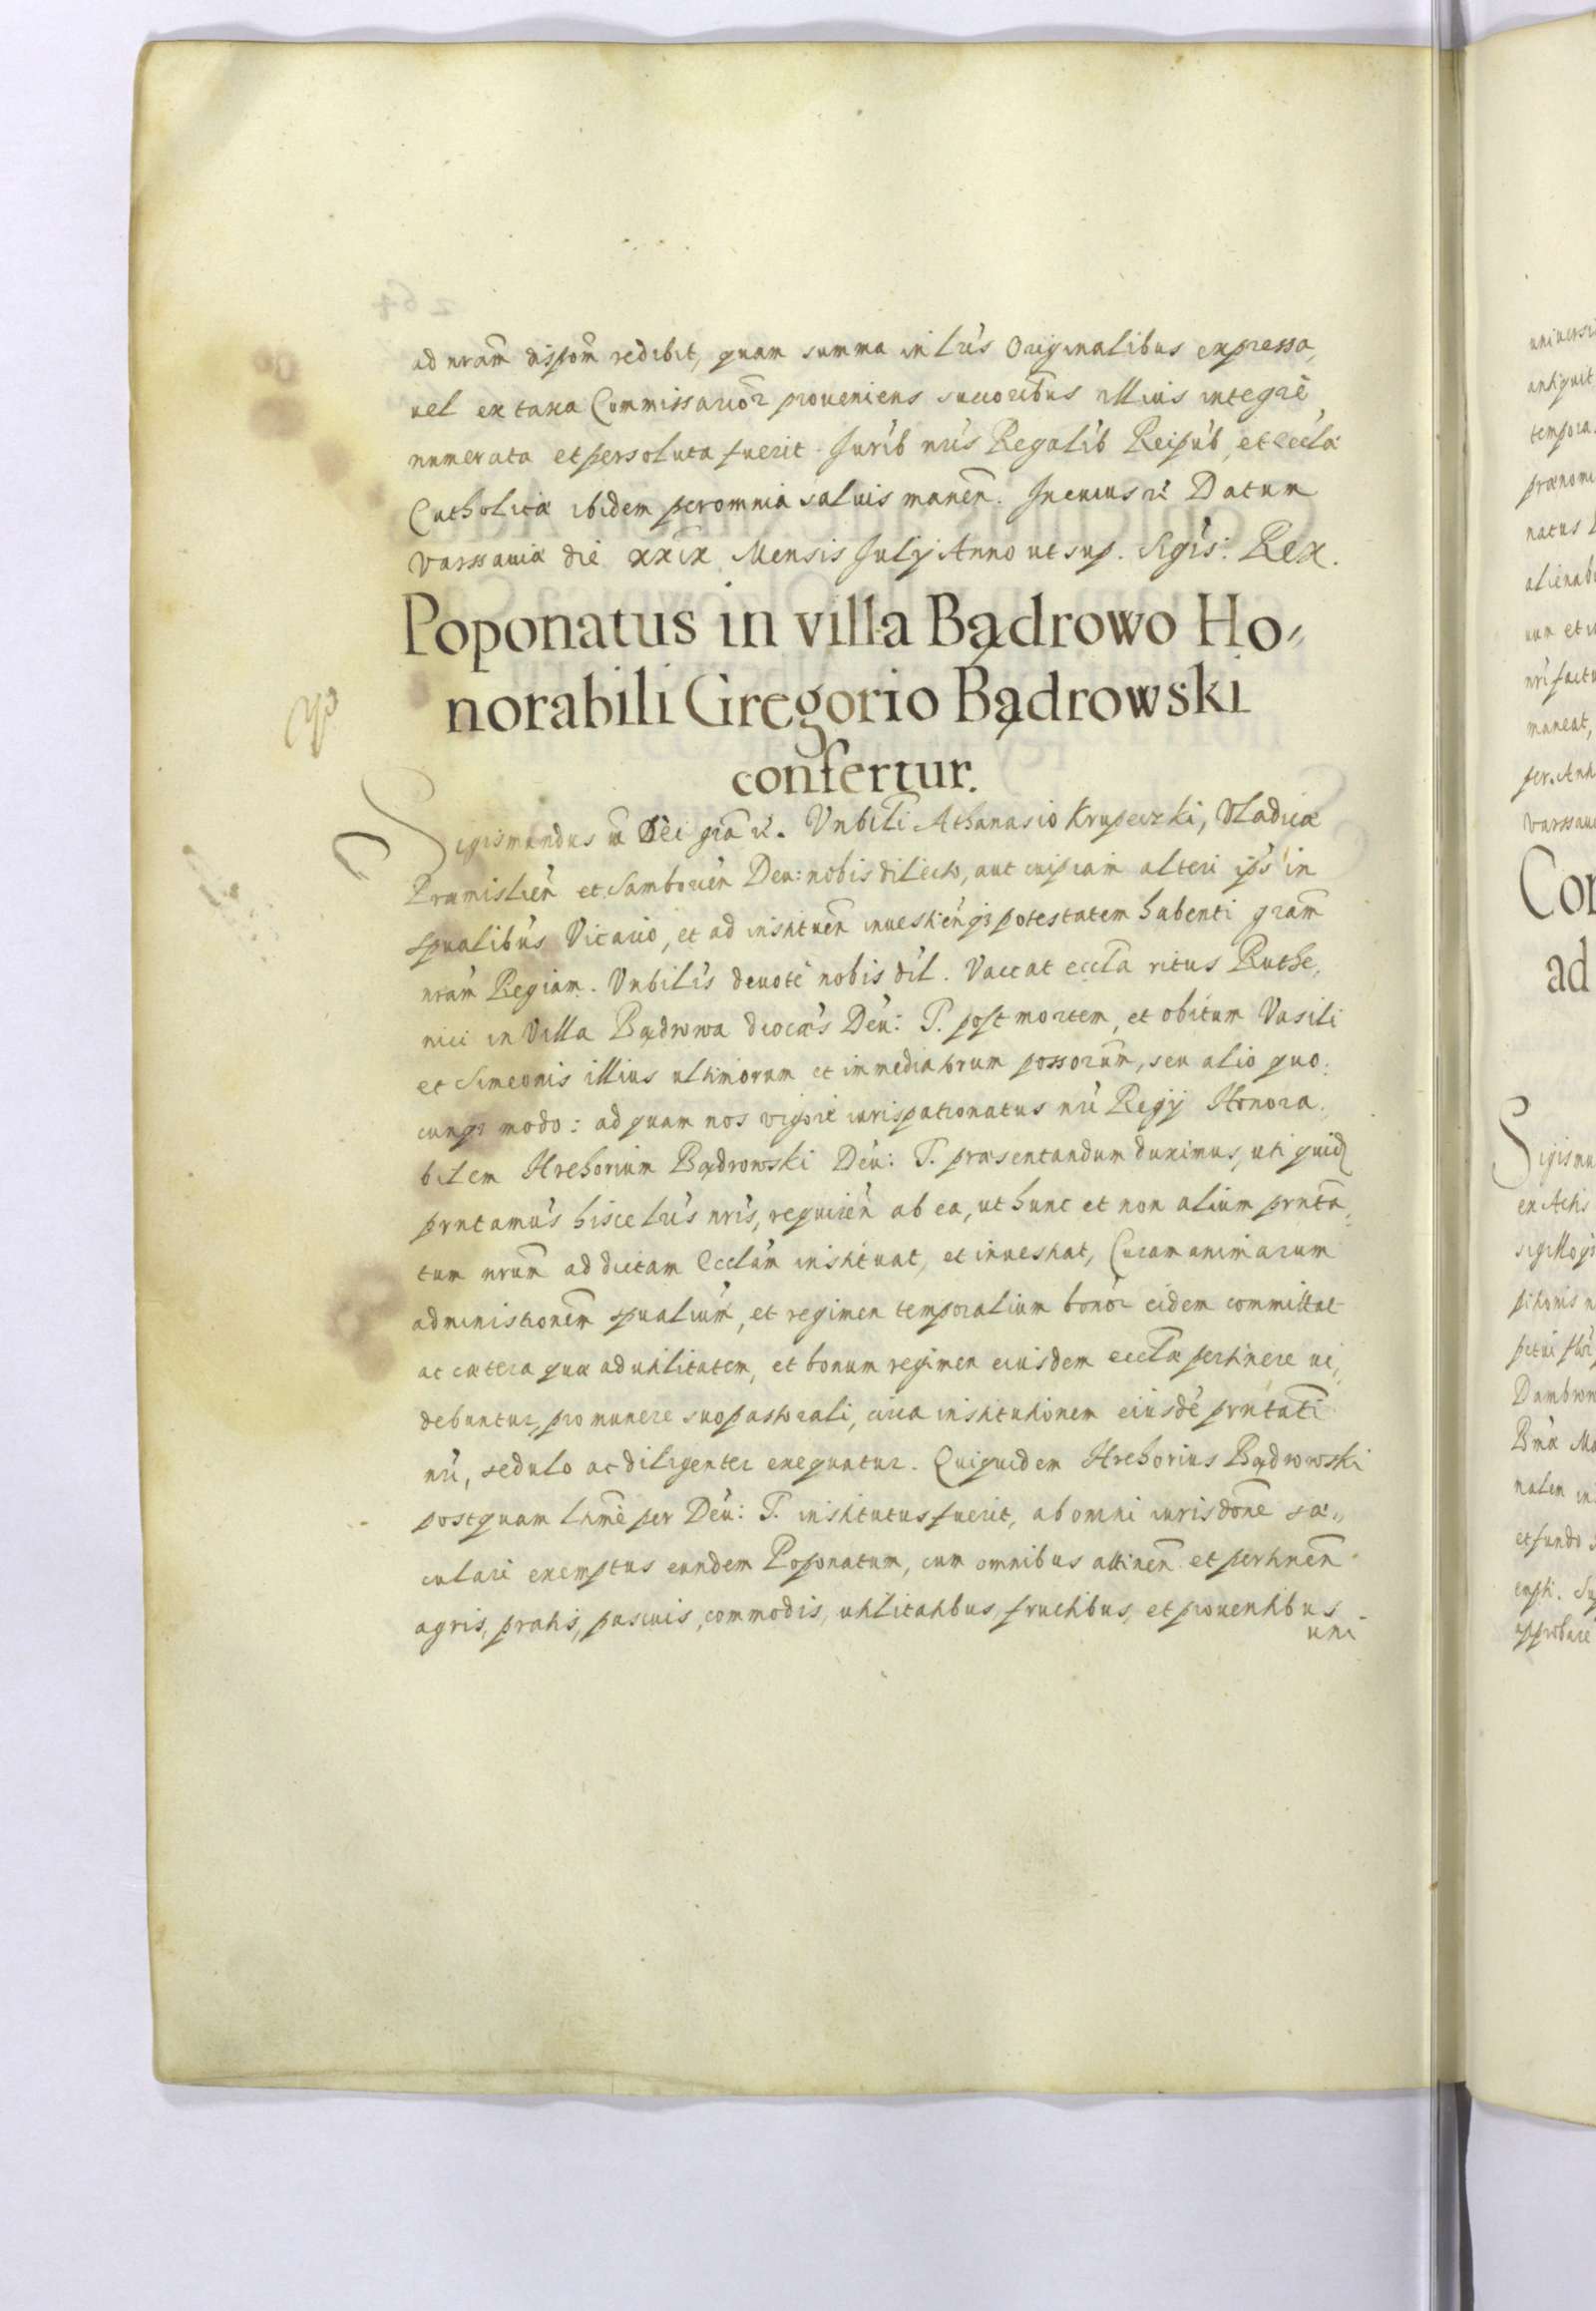 ad nram dispom redibit, quam summa in lris Originalibus expressa,
vel ex taxa Commissarior proveniens succoribus illius integre
numerata et persoluta fuerit. Jurib nris Regalib Reipub, et eccla
Catholicæ ibidem per omnia salvis manen. In cuius rei Datum
Varssaviæ die xxix Mensis July Anno ut sup. Sigis: Rex.
Poponatus in villa Bądrowo Ho⸗
norabili Gregorio Bądrowski
confertur.
Sigismundus Dei gra. Vnbili Athanasio Krupeczki, Vladicæ
Præmislien et Samborien Deu: nobis dilecto, aut cuipiam alteri ips in
spualibus Vicario, et ad instituen investienq3 potestatem habenti gram
nram Regiam. Vnbilis devote nobis dil. Vaccat eccla ritus Ruthe,
nici in Villa Bądrowa diocæs Deu: T. post mortem, et obitum Vasili
et Simeonis illius ultimorum et immediatorum possorum, seu alio quo:
cunq3 modo: ad quam nos vigore iuris patronatus nri Regij Honora.
bilem Hrehorium Bądrowski Deu: T. præsentandum duximus, uti quid
prntamus hisce lris nris, requiren ab ea, ut hunc et non alium prnta,
tum nrum ad dictam Ecclam instituat, et investiat, Curam animarum
administionem spualium, et regimen temporalium bonor eidem committat
ac cætera quæ ad utilitatem, et bonum regimen eiusdem ecclæ pertinere vi,
debuntur, pro munere suo pastorali, circa institutionem eiusde prntati
nri, sedulo ac diligenter exequatur. Qui quidem Hrehorius Bądrowski
postquam ltime per Deu: T. institutus fuerit, ab omni iurisdone sæ,,
culari exemptus eundem Poponatum, cum omnibus attinen et pertinen
agris, pratis, pascuis, commodis, utilitatibus, fructibus, et proventibus
uni